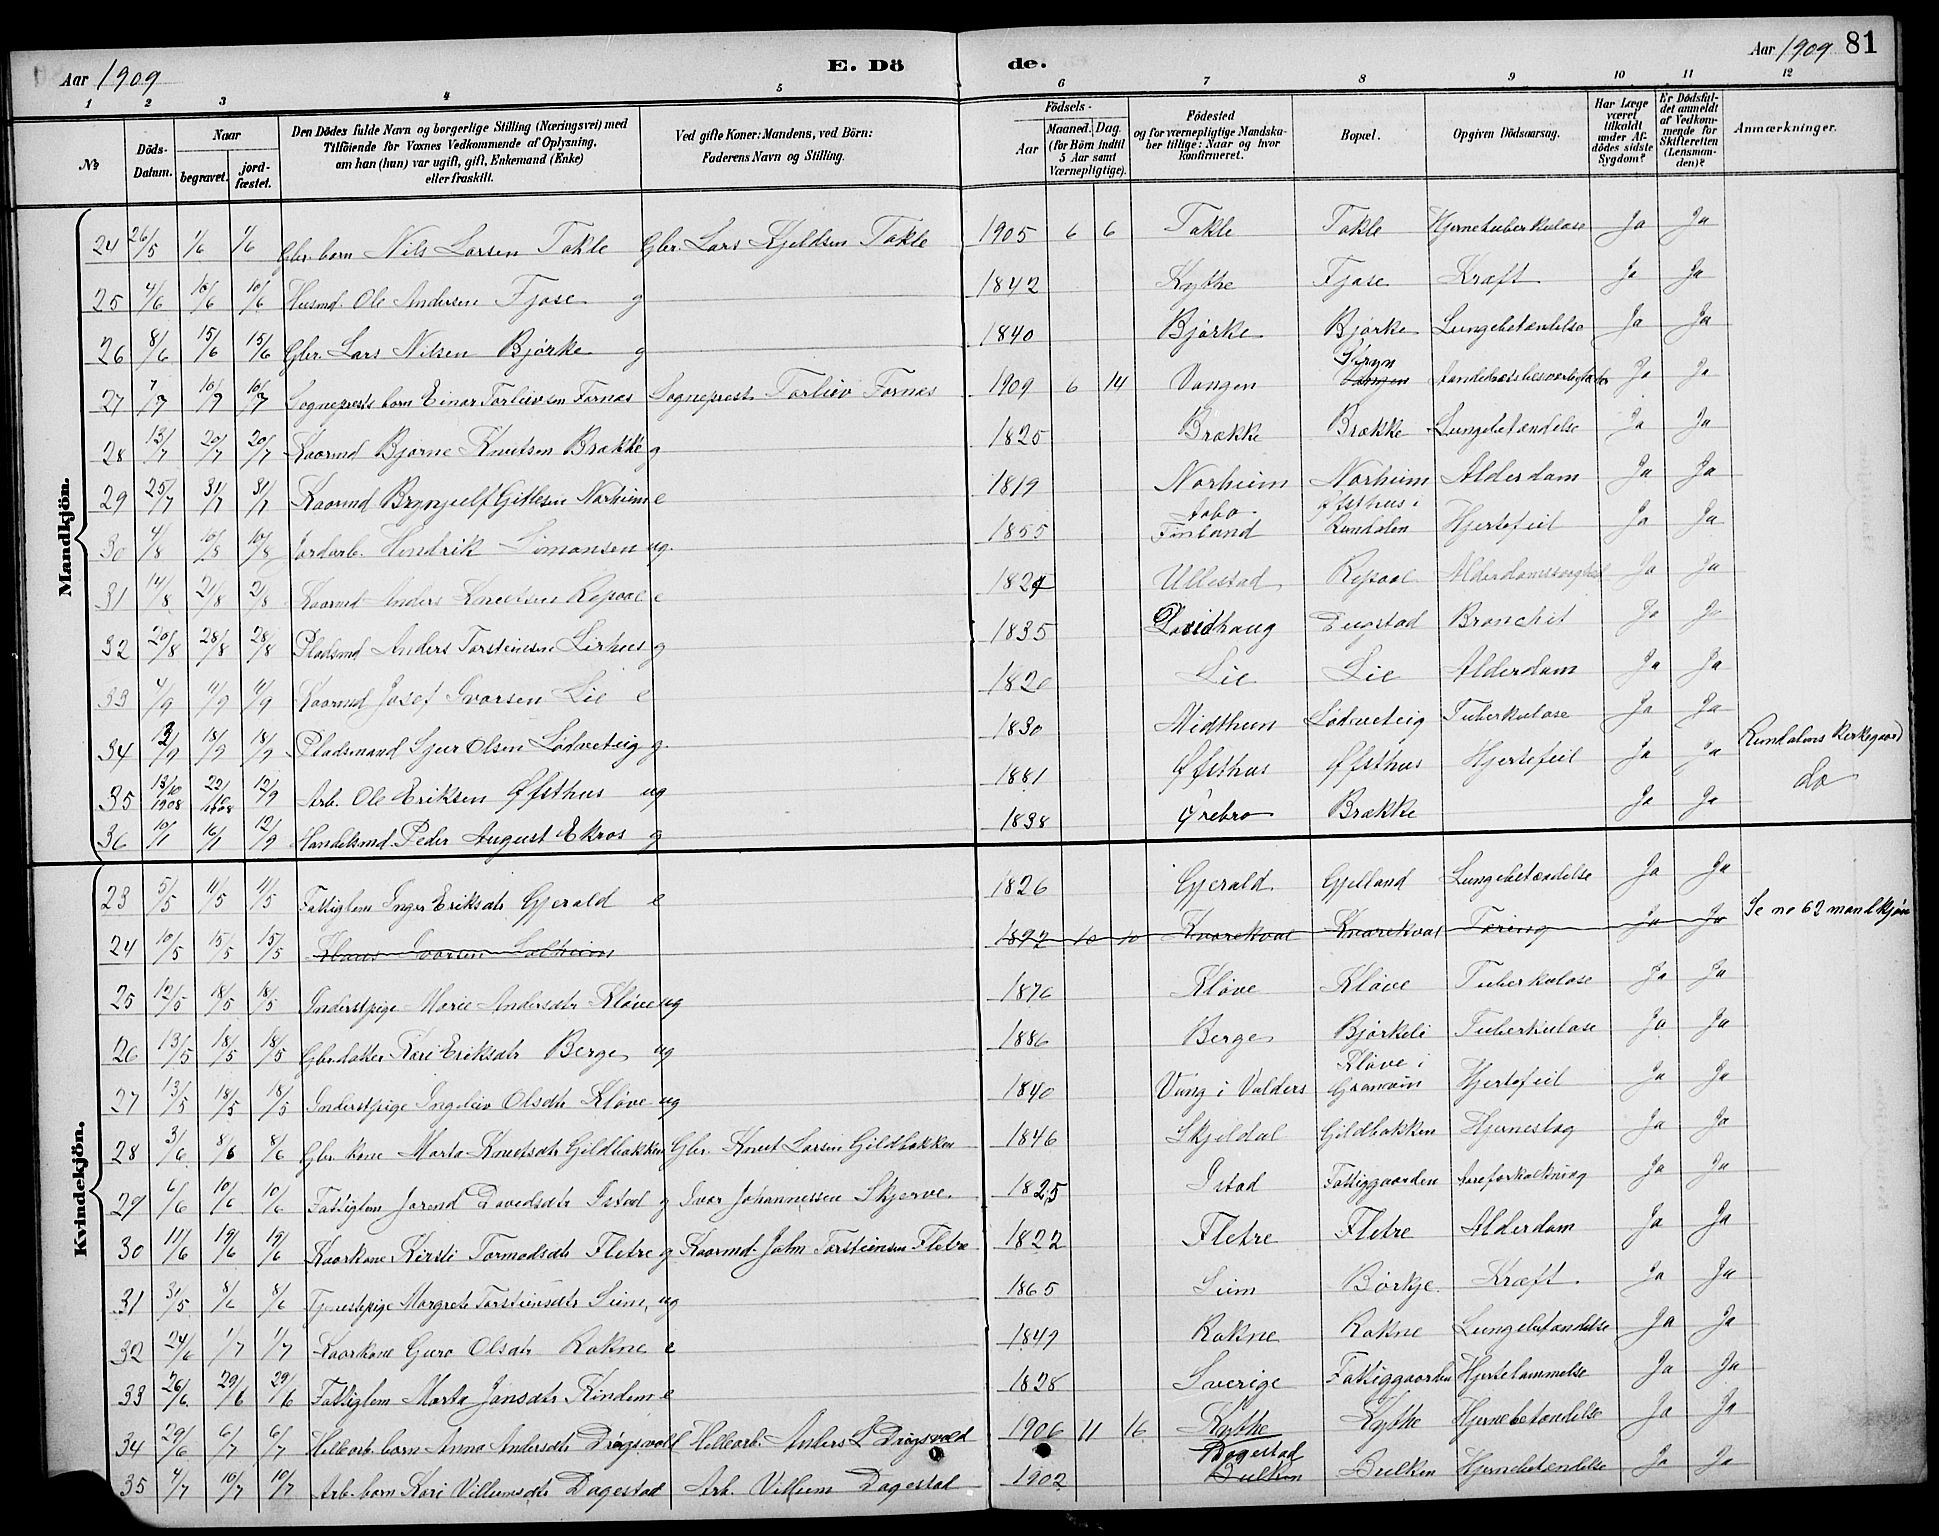 Aar 1909
E. Dö
de.
Aar 1909 81
1 2 3 4 5 6 7 8 9 10 11 12
№
Döds-Datum.
Naar
begravet.
jord-fæstet.
Den Dödes fulde Navn og borgerlige Stilling (Næringsvei) med
Tilföiende for Voxnes Vedkommende af Oplysning,
om han (hun) var ugift, gift, Enkemand (Enke)
eller fraskilt.
Ved gifte Koner: Mandens, ved Börn:
Faderens Navn og Stilling.
Födsels-
Aar
Maaned. Dag.
(for Börn indtil
5 Aar samt
Værnepligtige).
Födested
og for værnepligtige Mandska-
ber tillige: Naar og hvor
konfirmeret.
Bopæl.
Opgiven Dödsaarsag.
Har Læge
været
tilkaldt
under Af-
dödes sidste
Sygdom?
Er Dödsfal-
det anmeldt
af Vedkom-
mende for
Skifteretten
(Lensman-
den)?
Anmærkninger.
Mandkjön.
24 26/5 1/6 1/6 Gbr. barn Nils Larsen Takle Gbr. Lars Kjeldsen Takle 1905 6 6 Takle Takle Hjernetuberkulose Ja Ja
25 4/6 10/6 10/6 Husmd. Ole Andersen Fjose g 1842 Kythe Fjose Kræft Ja Ja
26 8/6 15/6 15/6 Gbr. Lars Nilsen Bjørke g 1840 Bjørke Bjørke Lungebetændelse Ja Ja
27 7/7 10/7 10/7 Sogneprests barn Einar Torleivsen Fornæs Sogneprest Torleiv Fornæs 1909 6 14 Vangen Stryn Vangen Aandedrætsbesværligheder Ja Ja
28 13/7 20/7 20/7 Kaarmd Bjørne Knutsen Brække g 1825 Brække Brække Lungebetændelse Ja Ja
29 25/7 31/7 31/7 Kaarmd Brynjulf Gitlesen Norheim e 1819 Norheim Norheim Alderdom Ja Ja
30 4/8 10/8 10/8 Jordarb. Hendrik Simonsen ug. 1855 Aabo Finland Øfsthus i Rundalen Hjertefeil Ja Ja
31 14/8 21/8 21/8 Kaarmd Anders Knutsen Repaal e 1824 Ullestad Repaal Alderdomssvaghed Ja Ja
32 20/8 28/8 28/8 Pladsmd Anders Torsteinsen Lirhus g 1835 Dugstad Bronchit Ja Ja
33 4/9 11/9 11/9 Kaarmd Josef Ivarsen Lie e 1820 Lie Lie Alderdom Ja Ja
34 18/9 18/9 Pladsmand Sjur Olsen Lødveteig g. 1830 Midthun Lødveteig Tuberkulose Ja Ja
35 13/10 1908 22/10 1908 12/9 Arb. Ole Eriksen Øfsthus ug 1881 Øfsthus Øfsthus Hjertefeil Ja Ja Rundalens Kirkegaard
36 10/1 16/1 12/9 Handelsmd. Peder August Ekros g 1838 Ørebro Brække Ja Ja do
Kvindekjön.
23 5/5 11/5 11/5 Fattiglem Inger Eriksdtr Gjerald e 1826 Gjerald Gjelland Lungebetændelse Ja Ja
24 10/5 15/5 15/5 Klaus Ivarsen Solheim 1892 10 10 Kvarekval Kvarekval Tæring Ja Ja Se no 62 mandkjøn
25 12/5 18/5 18/5 Inderstpige Marie Andersdtr Kløve ug 1876 Kløve Kløve Tuberkulose Ja Ja
26 13/5 18/5 18/5 Gbr.datter Kari Eriksdtr Berge ug 1886 Berge Bjørkeli Tuberkulose Ja Ja
27 13/5 18/5 18/5 Inderstpige Ingeleiv Olsdtr Kløve ug 1840 Vang i Valders Kløve i Granvin Hjertefeil Ja Ja
28 3/6 8/6 8/6 Gbr. kone Marta Knutsdtr Gildbakken Gbr. Knut Larsen Gildbakken 1846 Skjeldal Gildbakken Hjerneslag Ja Ja
29 6/6 10/6 10/6 Fattiglem Jorend Davedsdtr Istad g Ivar Johannessen Skjerve 1825 Istad Fattiggaarden Aareforkalkning Ja Ja
30 11/6 19/6 19/6 Kaarkone Kirsti Tormodsdtr Fletre g Kaarmd. John Torsteinsen Fletre 1822 Fletre Fletre Alderdom Ja Ja
31 31/5 8/6 8/6 Tjenestpige Margrete Torsteinsdtr Sæim ug 1865 Sæim Børkje Kræft Ja Ja
32 24/6 1/7 1/7 Kaarkone Guro Olsdtr Rokne e 1849 Rokne Rokne Lungebetændelse Ja Ja
33 26/6 29/6 29/6 Fattiglem Marta Jansdtr Rindem e 1828 Sverige Fattiggaarden Hjertelammelse Ja Ja
34 29/6 6/7 6/7 Hellearb. barn Anna Andersdtr Drøgsvold Hellearb. Anders L Drøgsvold 1906 11 16 Kythe Kythe Hjernebetændelse Ja Ja
35 4/7 10/7 10/7 Arb. barn Kari Villumsdtr Dagestad Arb. Villum Dagestad 1902 Dagestad Bulken Bulken Hjernebetændelse Ja Ja